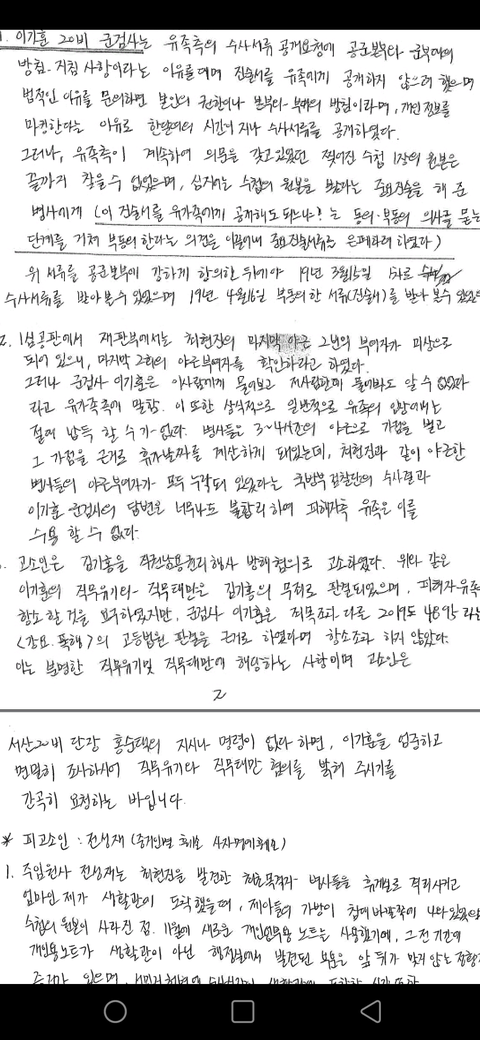 1. 이기훈 20비 군검사는 유족측의 수사서류 공개요청에 공군본부나 군부대의
방침·지침 사항이라는 이유를 대며 진술서를 유족에게 공개하지 않으려 했으며
법적인 이유를 문의하면 본인의 권한이나 본부의 방침이라며, 개인정보를
마킹한다는 이유로 한달여의 시간이 지나 수사서류를 공개하였다.
그러나, 유족측이 계속하여 의문을 갖고 있었던 찢어진 수첩 1장의 원본은
끝까지 찾을 수 없었으며, 심지어는 수첩의 원본을 봤다는 중요진술을 해 준
병사에게 (이 진술서를 유가족에게 공개해도 되느냐? 는 동의·부동의 의사를 묻는
단계를 거쳐 부동의 한다는 의견을 이끌어내 중요진술서류를 은폐하려 하였다)
위 서류를 공군본부에 강하게 항의한 뒤에야 19년 3월15일 1차로
수사서류를 받아볼수 있었으며 19년 4월16일 부동의한 서류(진술서)를 받아 볼수 있었
2. 1심공판에서 재판부에서는 최현진의 마지막 야근 2번의 부여자가 미상으로
되어 있으니, 마지막 2회의 야근부여자를 확인하라고 하였다.
그러나 군검사 이기훈은 이사람에게 물어보고 저사람한테 물어봐도 알 수 없었다
라고 유가족측에 말함. 이 또한 상식적으로 일반적으로 유족의 입장에서는
절대 납득 할 수가 없다. 병사들은 3~4시간의 야근으로 가점을 벌고
그 가점을 근거로 휴가날짜를 계산하게 돼있는데, 최현진과 같이 야근한
병사들의 야근부여자가 모두 누락되 있었다는 국방부 검찰단의 수사결과
이기훈 군검사의 답변은 너무나도 불합리하여 피해가족 유족은 이를
수용 할 수 없다.
고소인은 김기홍을 직권남용권리행사 방해 혐의로 고소하였다. 위와 같은
이기훈의 직무유기와 직무태만은 김기홍의 무죄로 판결되었으며, 피해자 유족
항소 할 것을 요구하였지만, 군검사 이기훈은 죄목조차 다른 2019노 48
<강요. 폭행>의 고등법원 판결을 근거로 하였다며 항소조차 하지 않았다.
이는 분명한 직무유기및 직무태만에 해당하는 사항이며 고소인은
2
서산20비 단장 홍순택의 지시나 명령이 없다 하면, 이기훈을 엄중하고
면밀히 조사하시어 직무유기와 직무태만 혐의를 밝혀 주시기를
간곡히 요청하는 바입니다.
* 피고소인 : 전성재
1. 주임원사 전성재는 최현진을 발견한 최초목격자 병사들을 휴게실로 격리시키고
엄마인 제가 생활관에 도착했을때, 제아들의 가방이 침대 바깥쪽에 나와 있었
수첩의 원본의 사라진 점. 11월에 새로운 개인업무용 노트는 사용했기에, 그 전 기간에
개인용노트가 생활관이 아닌 행정실에서 발견된 부분은 앞 뒤가 맞지 않는 정황